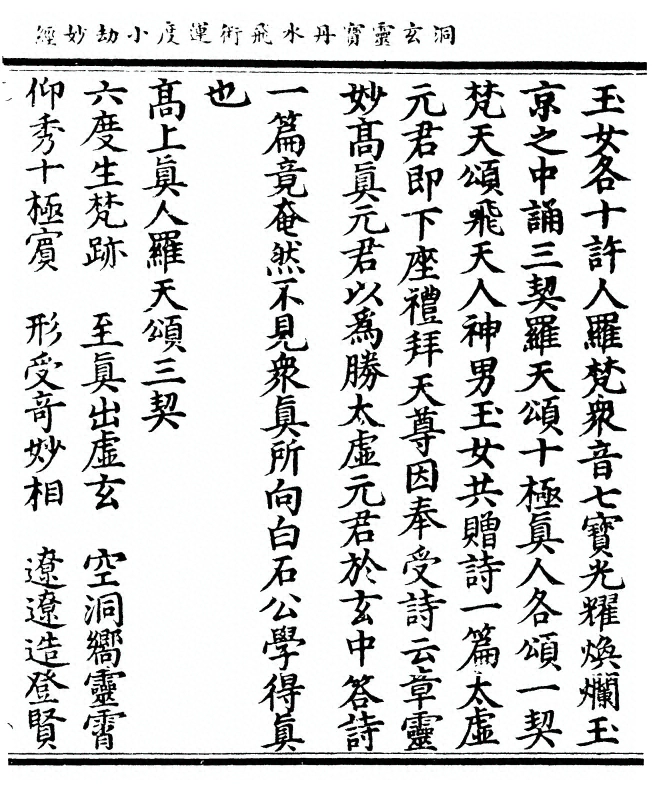 洞玄靈寶丹水飛術運度小劫妙經
玉女各十許人羅梵衆音七寶光耀煥爛玉
京之中誦三契羅天頌十極眞人各頌一契
梵天頌飛天人神男玉女共贈詩一篇太虛
元君即下座禮拜天尊因奉受詩云章靈
妙高眞元君以爲勝太虛元君於玄中答詩
一篇竟奄然不見衆眞所向白石公學得眞
也
髙上眞人羅天頌三契
六度生梵跡　至眞出虛玄　空洞嚮靈霄
仰秀十極賔　形受竒妙相　遼遼造登賢